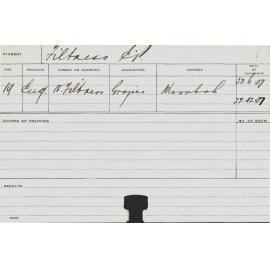 STUDENT Filtness
AGE RELIGION PARENT OR GUARDIAN OCCUPATION ADDRESS DATE OF ENTRANCE
19 Eng. W. Filtness Grazier 22.6.07
27.12.07
COURSE OF TRAINING NO. OF ROOM
RESULTS